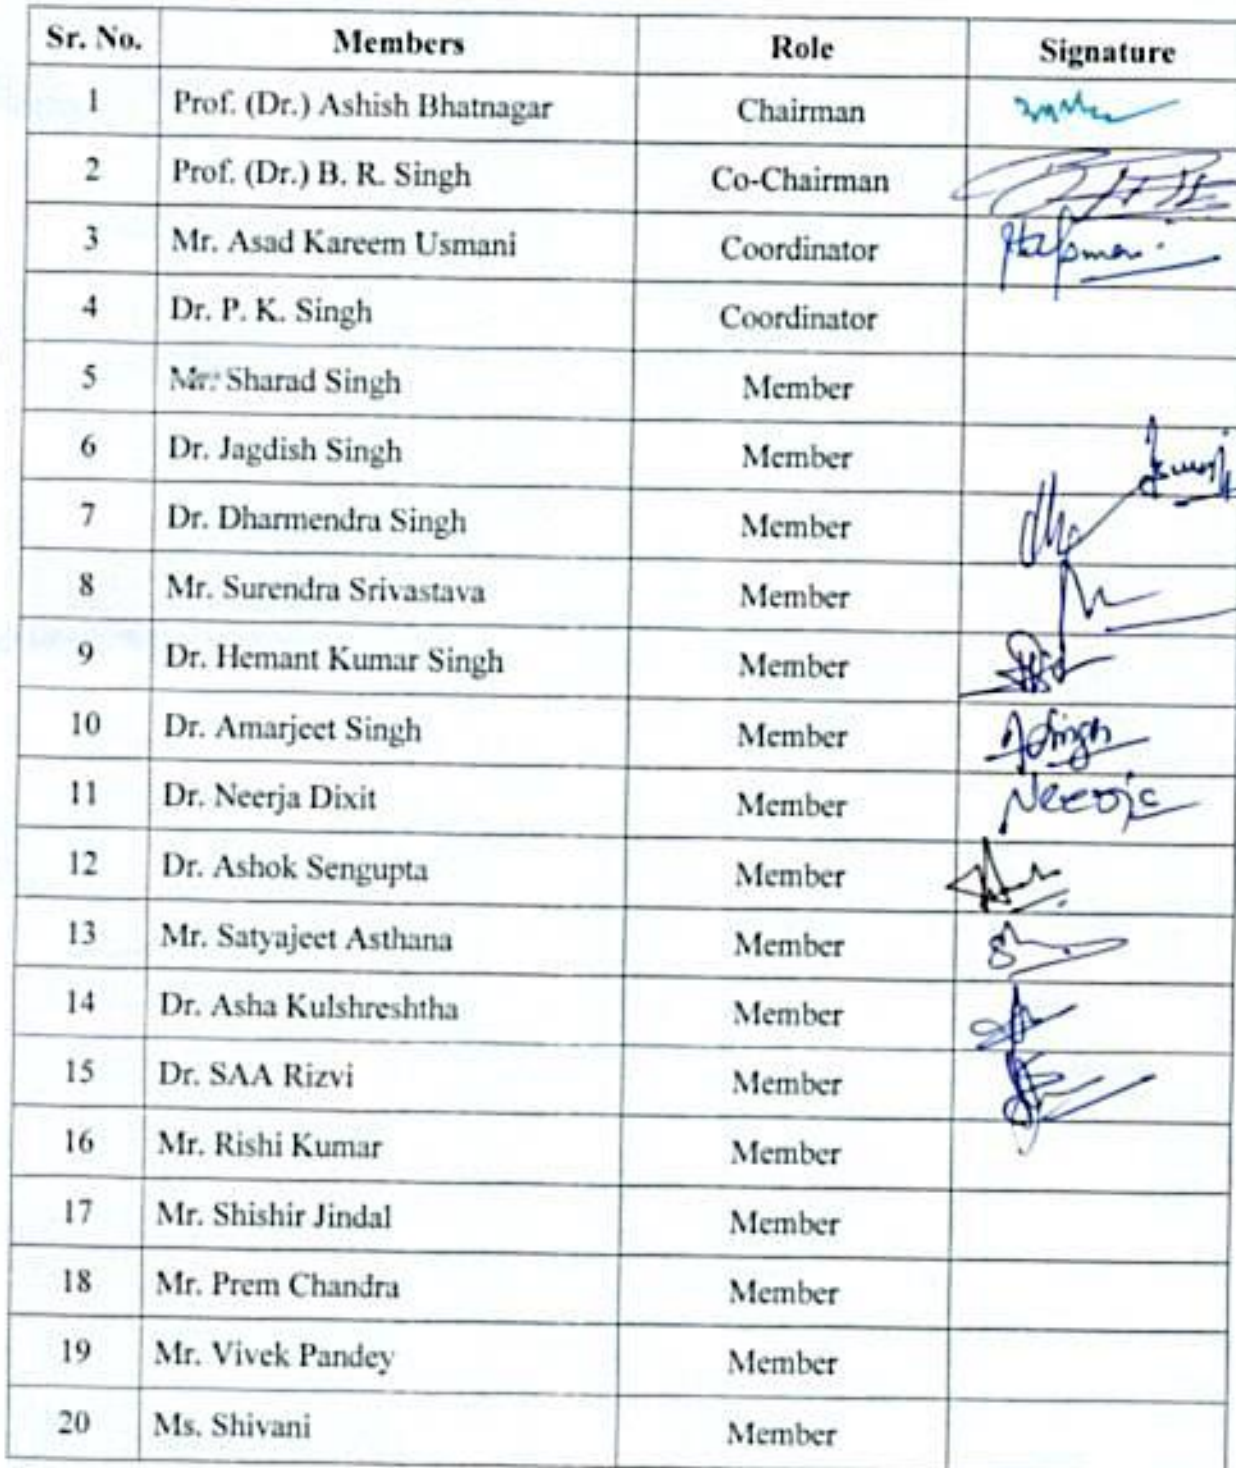 Sr. No. Members Role Signature
1 Prof. (Dr.) Ashish Bhatnagar Chairman
2 Prof. (Dr.) B. R. Singh Co-Chairman
3 Mr. Asad Kareem Usmani Coordinator
4 Dr. P. K. Singh Coordinator
5 Mr. Sharad Singh Member
6 Dr. Jagdish Singh Member
7 Dr. Dharmendra Singh Member
8 Mr. Surendra Srivastava Member
9 Dr. Hemant Kumar Singh Member
10 Dr. Amarjeet Singh Member ASingh
11 Dr. Neerja Dixit Member Neerja
12 Dr. Ashok Sengupta Member
13 Mr. Satyajeet Asthana Member
14 Dr. Asha Kulshreshtha Member
15 Dr. SAA Rizvi Member
16 Mr. Rishi Kumar Member
17 Mr. Shishir Jindal Member
18 Mr. Prem Chandra Member
19 Mr. Vivek Pandey Member
20 Ms. Shivani Member